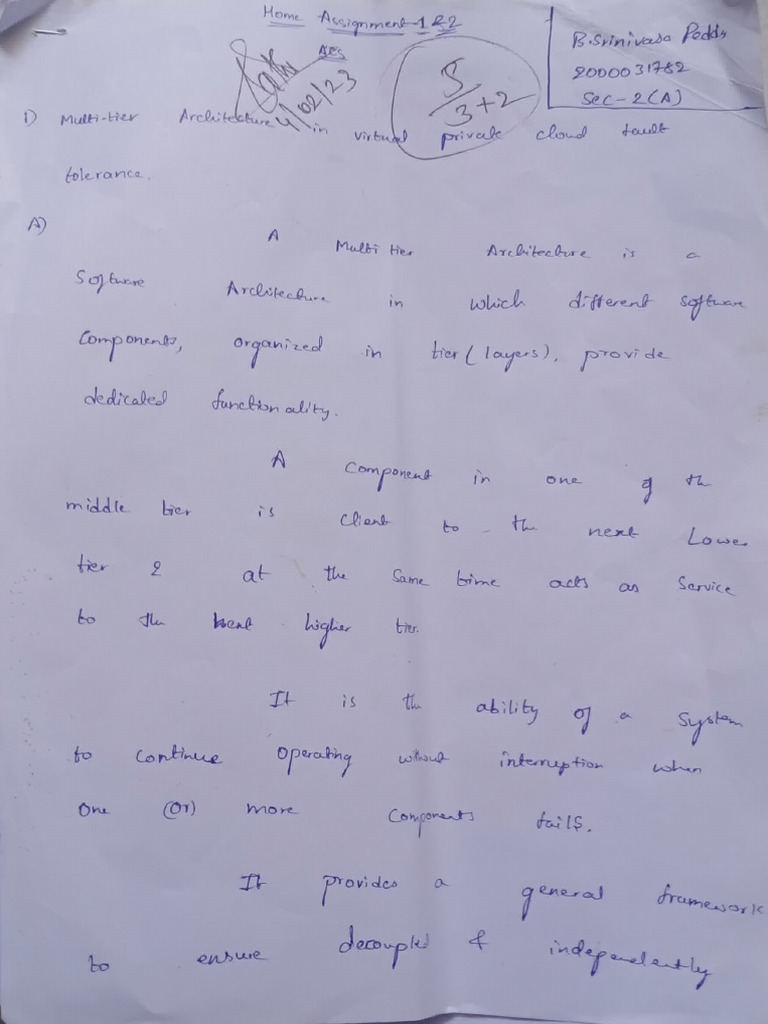 Home Assignment-1&2
B.Srinivasa Reddy
2000031782
Sec-2(A)
4/02/23
5/3+2
1) Multi-tier Architecture in virtual private cloud fault
tolerance.
A) A Multi tier Architecture is a
Software Architecture in which different software
Components, organized in tier(layers), provide
dedicated functionality.
A Component in one of the
middle tier is client to the next Lower
tier & at the same time acts as Service
to the next higher tier.
It is the ability of a System
to continue operating without interruption when
one (or) more Components fails.
It provides a general framework
to ensure decoupled & independently